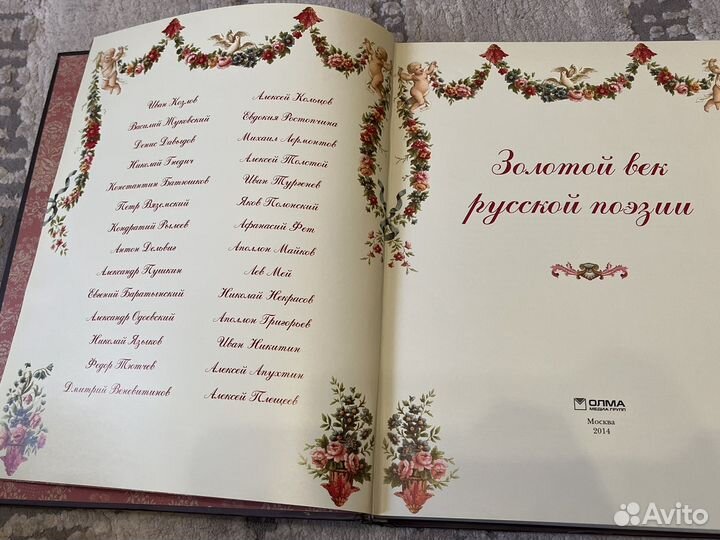 Иван Козлов
Василий Жуковский
Денис Давыдов
Николай Гнедич
Константин Батюшков
Петр Вяземский
Кондратий Рылеев
Антон Дельвиг
Александр Пушкин
Евгений Баратынский
Александр Одоевский
Николай Языков
Федор Тютчев
Дмитрий Веневитинов
Алексей Кольцов
Евдокия Ростопчина
Михаил Лермонтов
Алексей Толстой
Иван Тургенев
Яков Полонский
Афанасий Фет
Аполлон Майков
Лев Мей
Николай Некрасов
Аполлон Григорьев
Иван Никитин
Алексей Апухтин
Алексей Плещеев
Золотой век
русской поэзии
ОЛМА
МЕДИА ГРУПП
Москва
2014
Avito